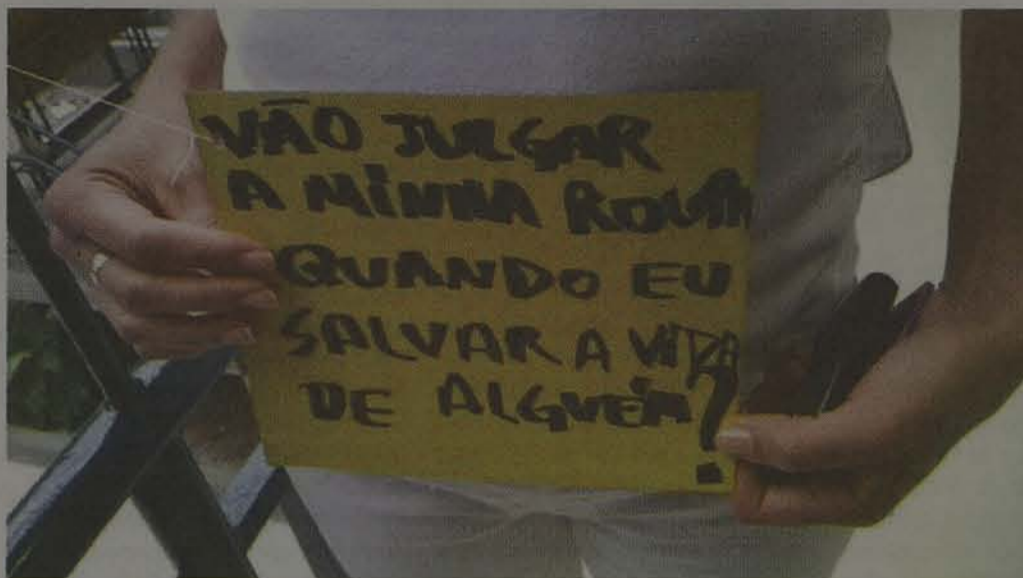 VÃO JULGAR
A MINHA ROUPA
QUANDO EU
SALVAR A VIDA
DE ALGUÉM?